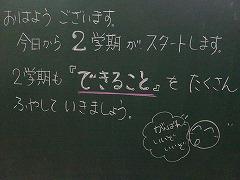 おはようございます。
今日から2学期がスタートします。
2学期も『できること』をたくさん
ふやしていきましょう。
がんばれよ
いいぞ
いいぞ